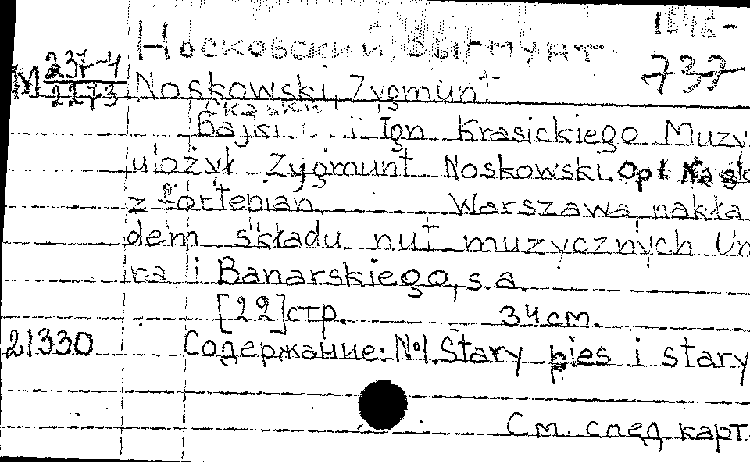 Носковский Зыгмунт 1846-
M 237-4 737
2273 Noskowski, Zygmunt
Сказки
Bajki i Ign Krasickiego Muzy
ułożył Zygmunt Noskowski. Op
z fortepian Warszawa, nakła
dem składu nut muzycznych Un
ra i Banarskiego, s.a.
[22] стр. 34 cm.
21330 Содержание: №1. Stary pies i stary
См. след карт.